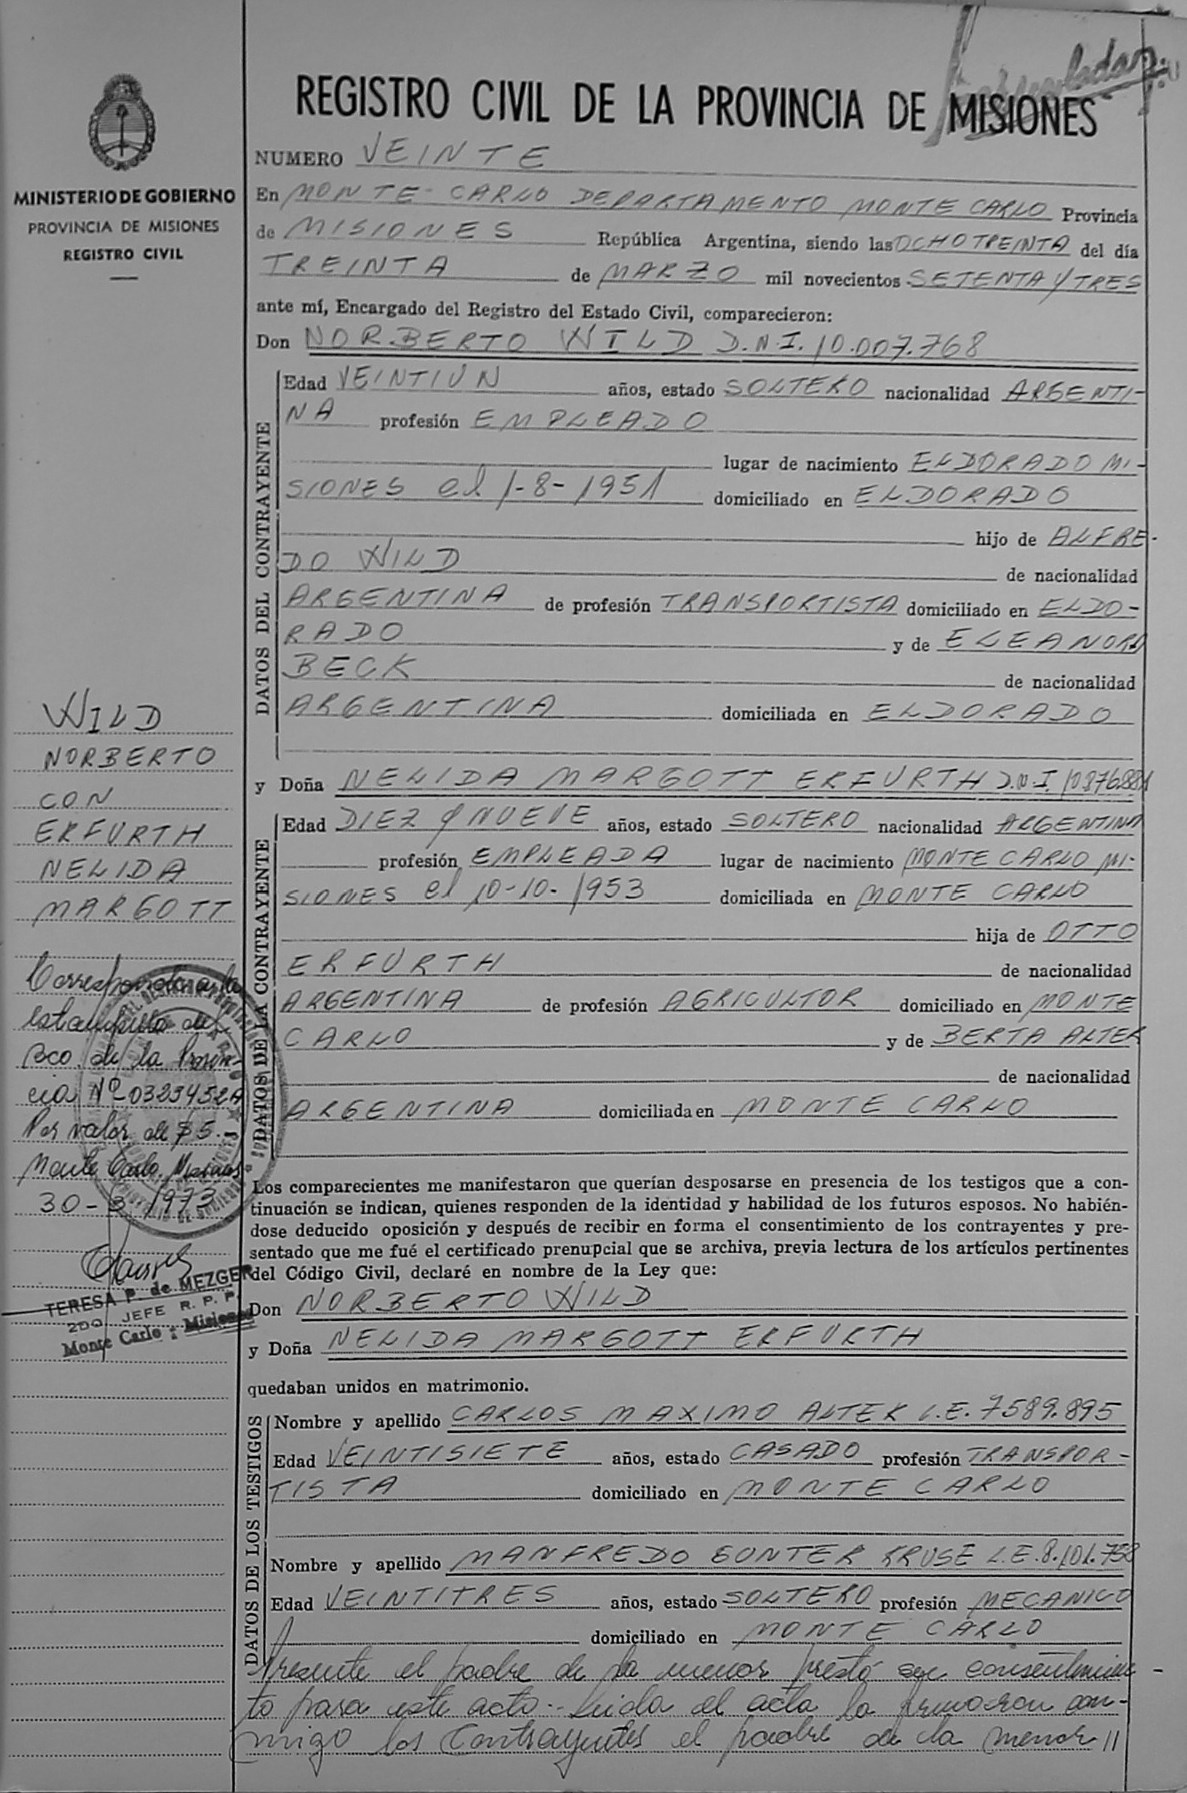 REGISTRO CIVIL DE LA PROVINCIA DE MISIONES
MINISTERIO DE GOBIERNO
PROVINCIA DE MISIONES
REGISTRO CIVIL
NUMERO VEINTE
En MONTE-CARLO DEPARTAMENTO MONTE CARLO Provincia
de MISIONES República Argentina, siendo las OCHO TREINTA del día
TREINTA de MARZO mil novecientos SETENTA Y TRES
ante mí, Encargado del Registro del Estado Civil, comparecieron:
Don NORBERTO WILD D.N.I. 10.007.768
DATOS DEL CONTRAYENTE
Edad VEINTIUN años, estado SOLTERO nacionalidad ARGENTI-
NA profesión EMPLEADO
lugar de nacimiento ELDORADO MI-
SIONES el 1-8-1951 domiciliado en ELDORADO
hijo de ALFRE-
DO WILD de nacionalidad
ARGENTINA de profesión TRANSPORTISTA domiciliado en ELDO-
RADO y de ELEANORA
BECK de nacionalidad
ARGENTINA domiciliada en ELDORADO
y Doña NELIDA MARGOTT ERFURTH D.N.I.
DATOS DE LA CONTRAYENTE
Edad DIEZ Y NUEVE años, estado SOLTERO nacionalidad ARGENTINA
profesión EMPLEADA lugar de nacimiento MONTE CARLO MI-
SIONES el 10-10-1953 domiciliada en MONTE CARLO
hija de OTTO
ERFURTH de nacionalidad
ARGENTINA de profesión AGRICULTOR domiciliado en MONTE
CARLO y de BERTA ALTER
de nacionalidad
ARGENTINA domiciliada en MONTE CARLO
WILD
NORBERTO
CON
ERFURTH
NELIDA
MARGOTT
Corresponde a la
estampilla del
Bco. de la Provin-
cia Nº 0323452A
Por valor de $5.-
Monte Carlo, Misiones
30-3-1973
TERESA P. de MEZGER
2DO. JEFE R. P. P.
Monte Carlo : Misiones
Los comparecientes me manifestaron que querían desposarse en presencia de los testigos que a con-
tinuación se indican, quienes responden de la identidad y habilidad de los futuros esposos. No habién-
dose deducido oposición y después de recibir en forma el consentimiento de los contrayentes y pre-
sentado que me fué el certificado prenupcial que se archiva, previa lectura de los artículos pertinentes
del Código Civil, declaré en nombre de la Ley que:
Don NORBERTO WILD
y Doña NELIDA MARGOTT ERFURTH
quedaban unidos en matrimonio.
DATOS DE LOS TESTIGOS
Nombre y apellido CARLOS MAXIMO ALTER L.E. 7589.895
Edad VEINTISIETE años, estado CASADO profesión TRANSPOR-
TISTA domiciliado en MONTE CARLO
Nombre y apellido MANFREDO GUNTER KRUSE L.E. 8.101.758
Edad VEINTITRES años, estado SOLTERO profesión MECANICO
domiciliado en MONTE CARLO
Presente el padre de la menor prestó su consentimien-
to para este acto.- Leída el acta la firmaron con-
migo los Contrayentes el padre de la menor //